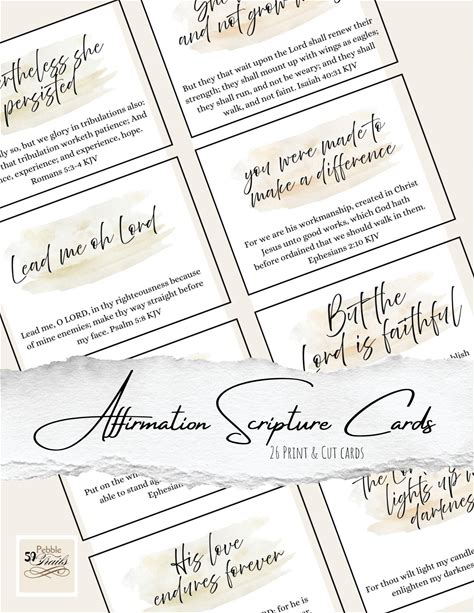 she
persisted
so, but we glory in tribulations also:
that tribulation worketh patience; And
experience; and experience, hope.
Romans 5:3-4 KJV
and not grow
But they that wait upon the Lord shall renew their
strength; they shall mount up with wings as eagles;
they shall run, and not be weary; and they shall
walk, and not faint. Isaiah 40:31 KJV
you were made to
make a difference
For we are his workmanship, created in Christ
Jesus unto good works, which God hath
before ordained that we should walk in them.
Ephesians 2:10 KJV
Lead me oh Lord
Lead me, O LORD, in thy righteousness because
of mine enemies; make thy way straight before
my face. Psalm 5:8 KJV
But the
Lord is faithful
Affirmation Scripture Cards
26 Print & Cut cards
Put on the
able to stand
lights up
darkness
For thou wilt light my candle
enlighten my darkness
His love
endures forever
for he is
59
Pebble
Trails